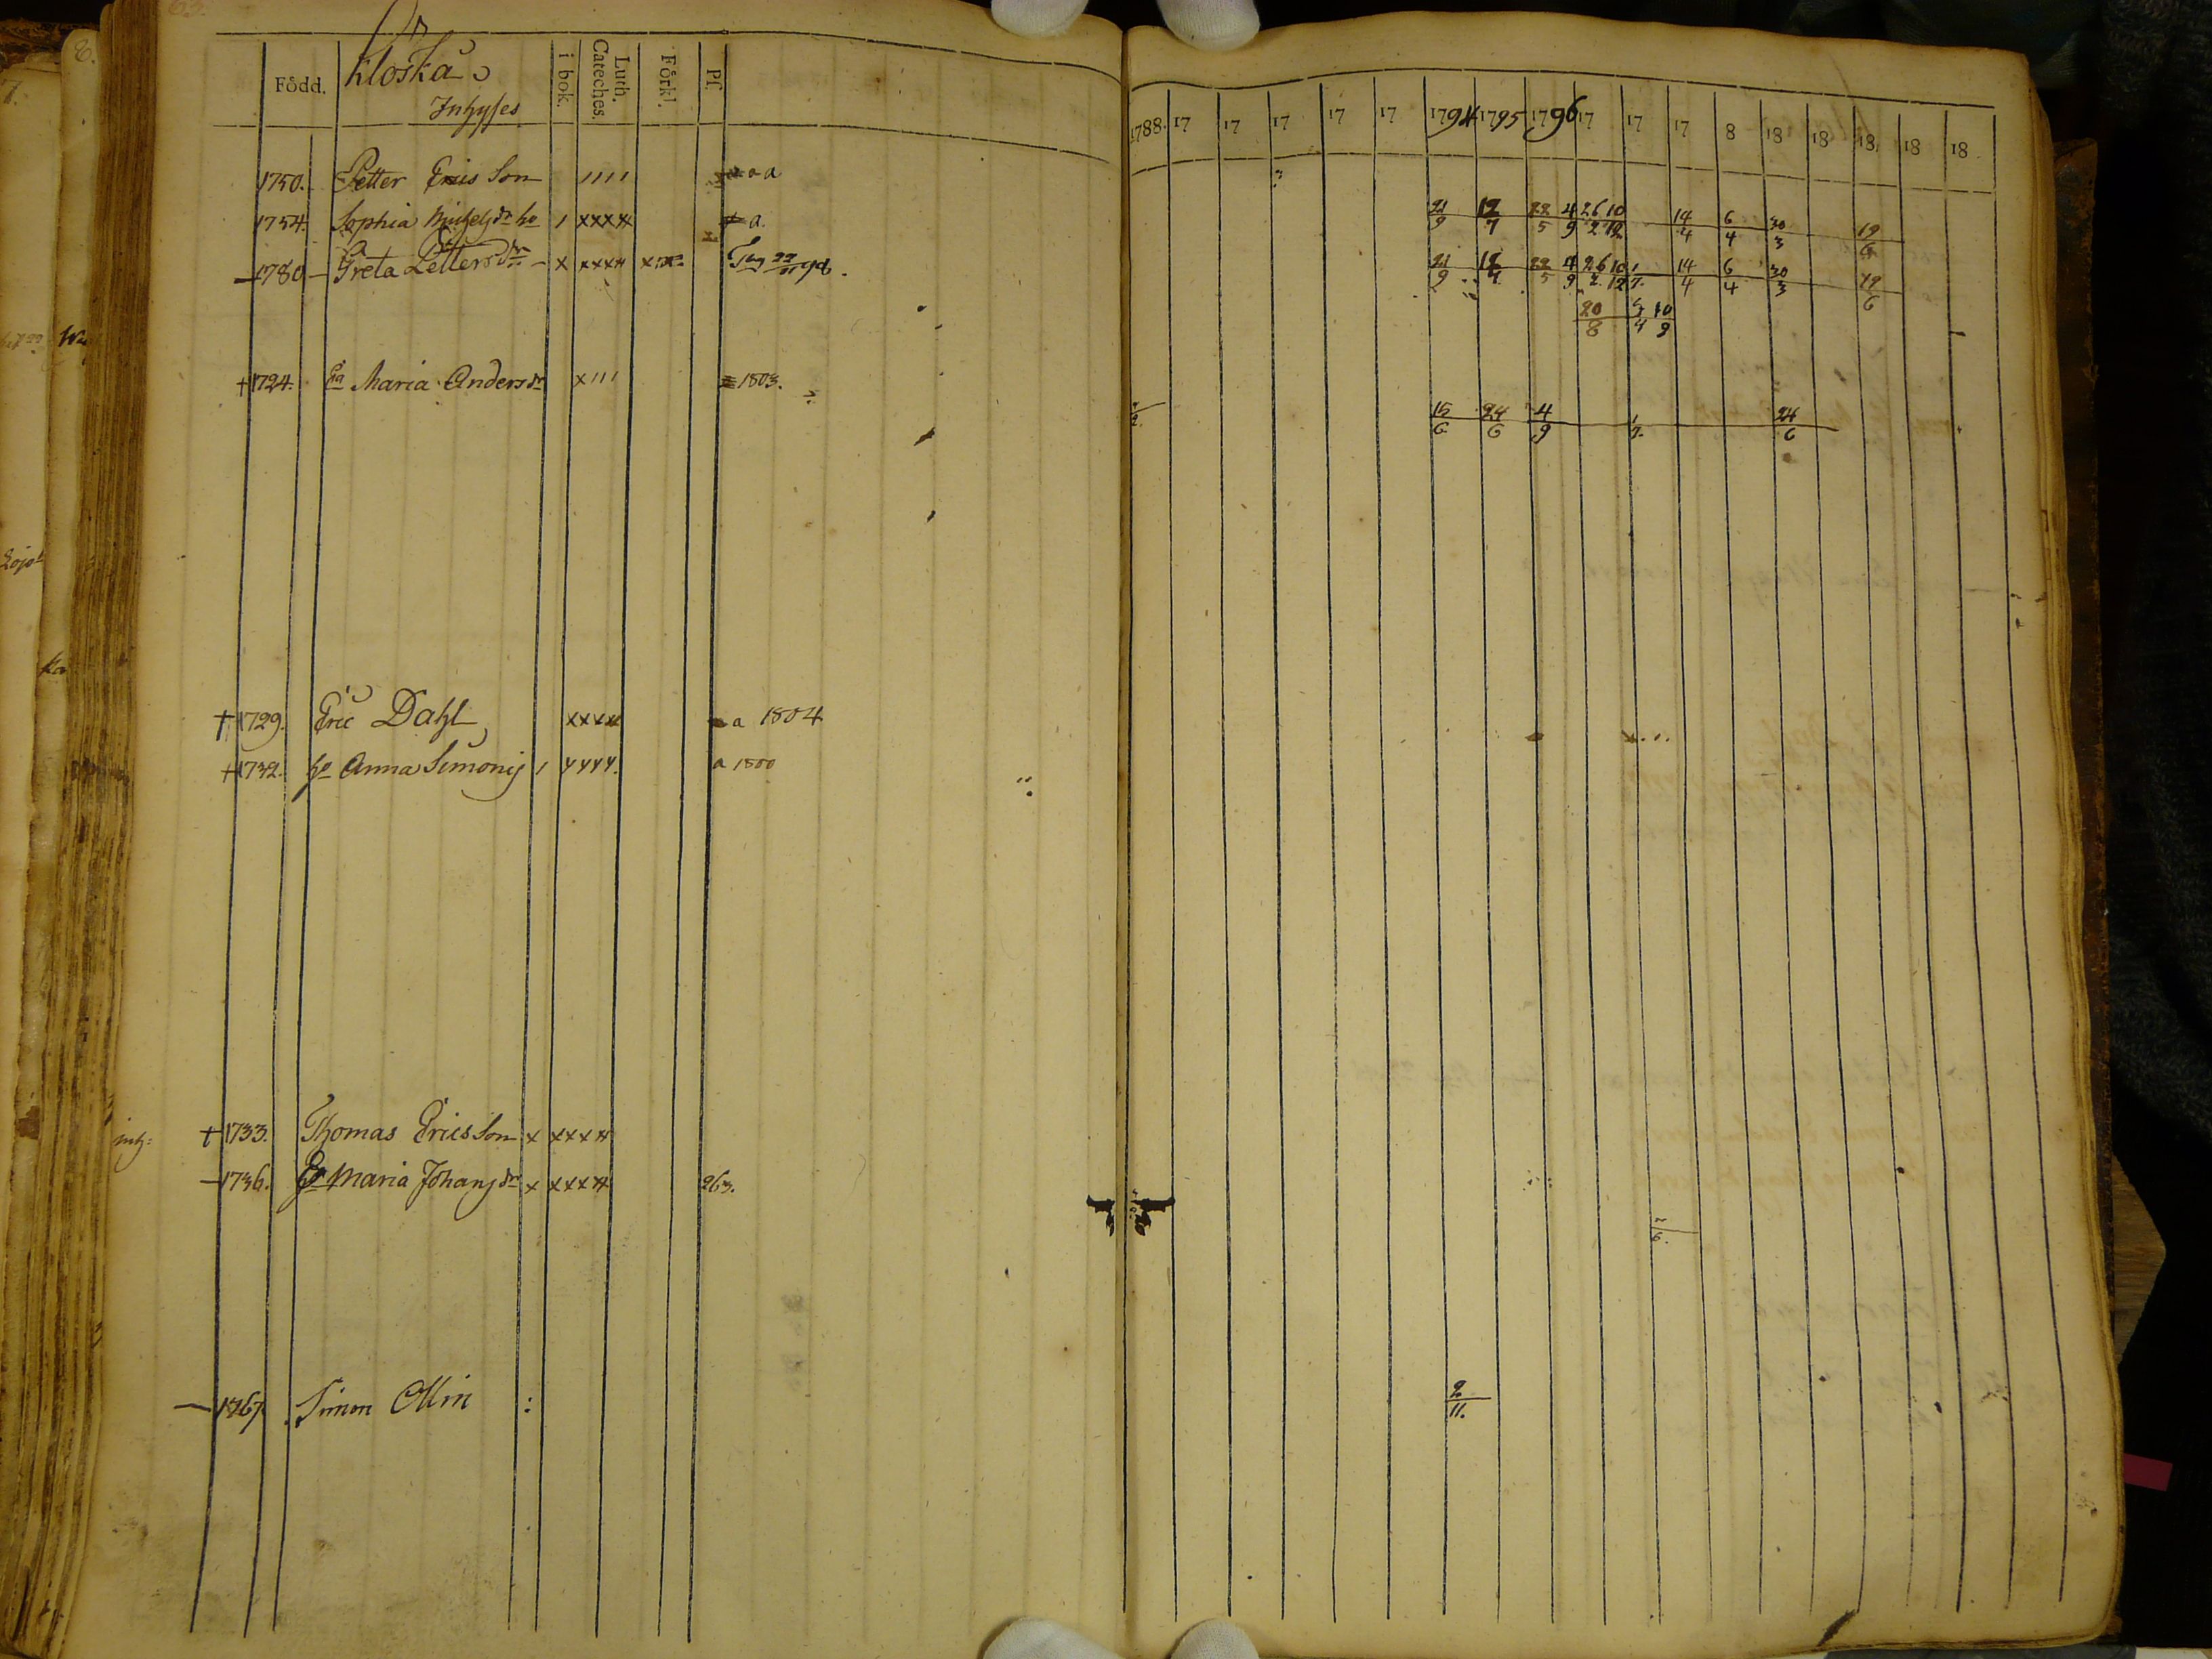 Född. Kloskå i bok. Luth. Cateches. Förkl. Pf.
Inhyses
1788. 17 17 17 17 17 1794 1795 1796 17 17 17 8 18 18 18 18 18
1750. Petter Erics Son //// a a
1754. Sophia Michelsdr ho / xxxx a. 21/9 12/7 22/5 4/9 26/2 10/12 14/4 6/4 30/3 19/6
1780 Greta Pettersdr x xxxx 21/9 12/7 22/5 4/9 26/2 10/12 1/7. 14/4 6/4 30/3 19/6
20/8 5/4 10/9
+ 1724. Maria Andersdr x/// 1803. 15/6 24/6 4/9 1/7. 24/6
+ 1729. Eric Dahl xxxx a 1804
+ 1732. ho Anna Simons / xxxx. a 1800
inh: + 1733. Thomas Erics Son x xxxx
1736. ho Maria Johansdr x xxxx 263.
1767. Simon Ollin : 2/11.